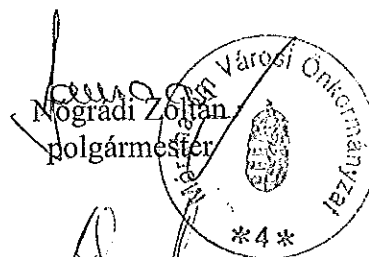 Nógrádi Zoltán
polgármester
Városi Önkormányzat
*4*